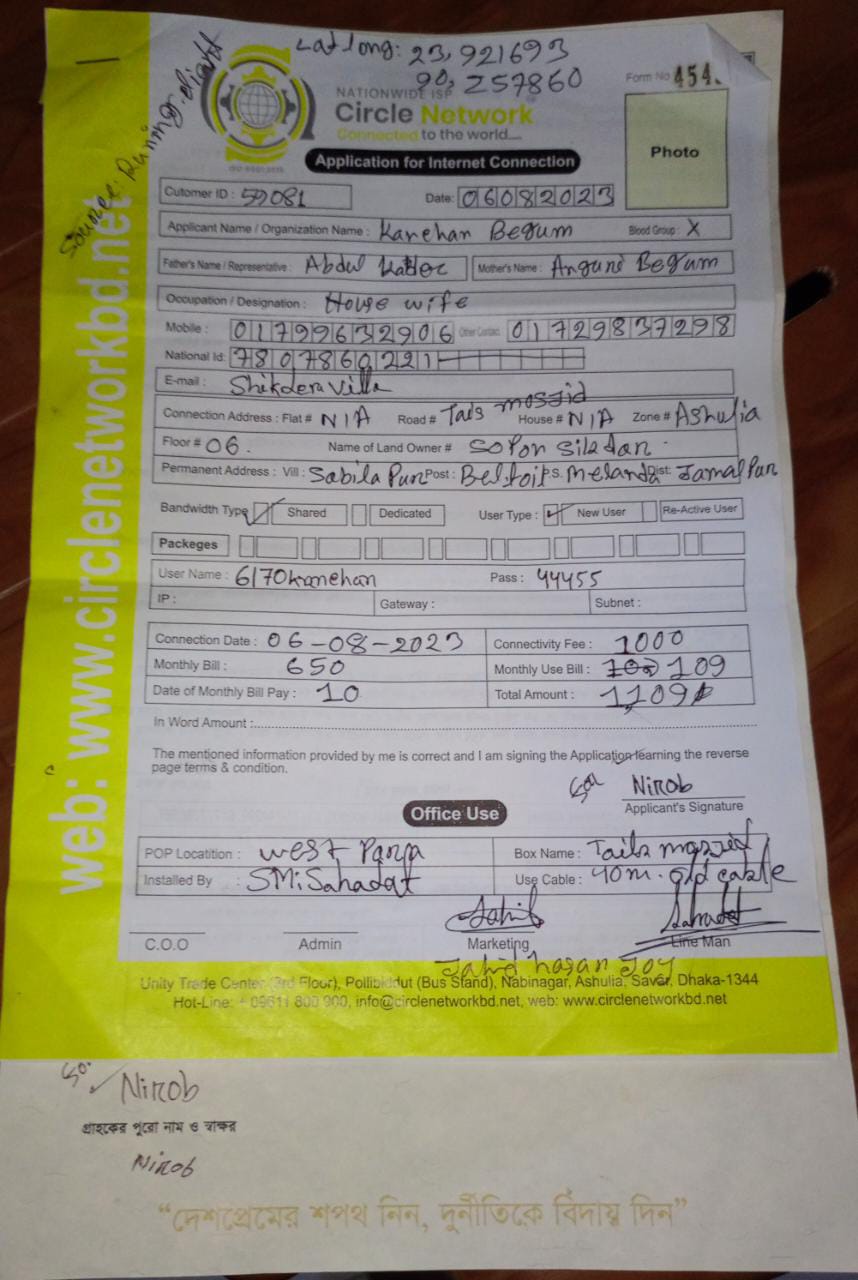 Lat long: 23,921693
90,257860
Form No 454
NATIONWIDE ISP
Circle Network
Connected to the world....
Photo
Application for Internet Connection
Cutomer ID : 59081 Date: 06082023
Applicant Name / Organization Name : Kanehan Begum Blood Group : X
Father's Name / Representative : Abdul Mother's Name : Anguni Begum
Occupation / Designation : House wife
Mobile : 01799632906 Other Contact 01729837298
National Id: 7807860221
E-mail : Shikdera Villa
Connection Address : Flat # N/A Road # Tais mosjid House # N/A Zone # Ashulia
Floor # 06. Name of Land Owner # Sopon Sikdan
Permanent Address : Vill : Sabila Pun Post : Beltoil P.S. Melanda Dist: Jamalpun
Bandwidth Type Shared Dedicated User Type : New User Re-Active User
Packeges
User Name : 6170kanehan Pass : 44455
IP : Gateway : Subnet :
Connection Date : 06-08-2023 Connectivity Fee : 1000
Monthly Bill : 650 Monthly Use Bill : 109
Date of Monthly Bill Pay : 10 Total Amount : 1109
In Word Amount :
The mentioned information provided by me is correct and I am signing the Application learning the reverse
page terms & condition.
Nirob
Applicant's Signature
Office Use
POP Locatition : West Parpa Box Name : Taila masjid
Installed By : SMi Sahadat Use Cable : 40m. old cable
C.O.O Admin Marketing Line Man
Jahid hasan Joy
Unity Trade Center (3rd Floor), Pollibiddut (Bus Stand), Nabinagar, Ashulia, Savar, Dhaka-1344
Hot-Line: + 09611 800 900, info@circlenetworkbd.net, web: www.circlenetworkbd.net
web: www.circlenetworkbd.net
Nirob
গ্রাহকের পুরো নাম ও স্বাক্ষর
Nirob
“দেশপ্রেমের শপথ নিন, দুর্নীতিকে বিদায় দিন”